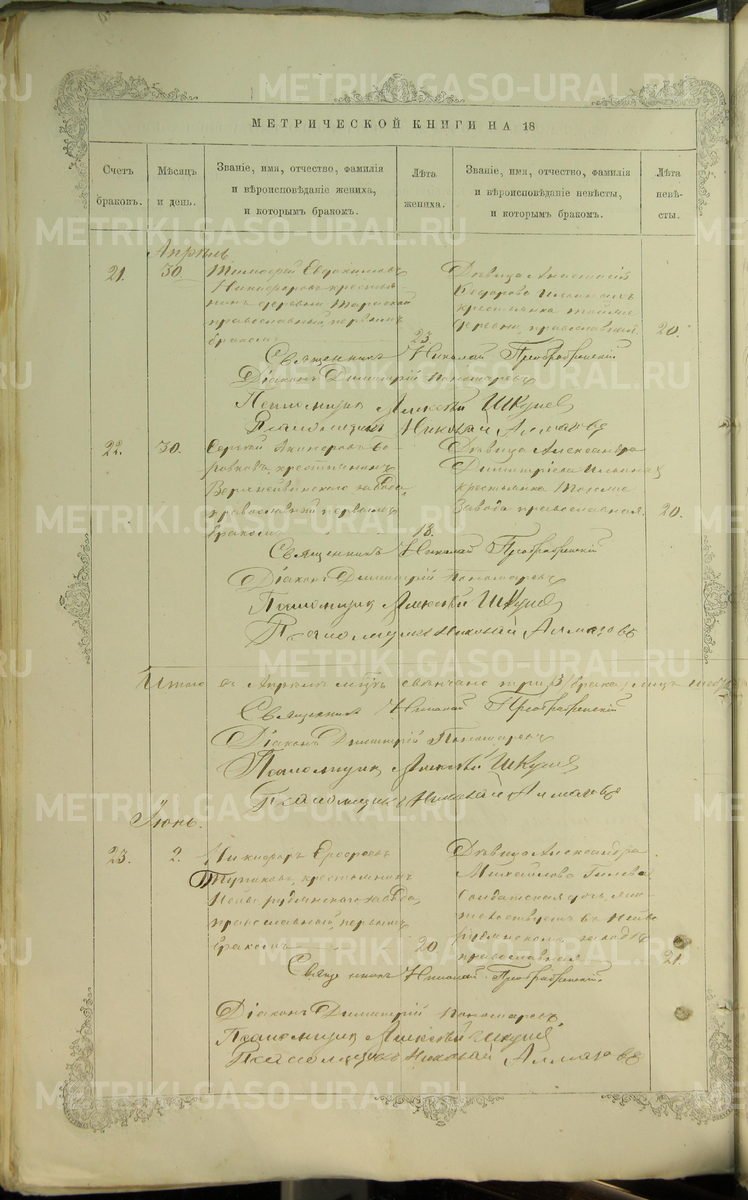 МЕТРИЧЕСКОЙ КНИГИ НА 18
Счетъ браковъ.
Мѣсяцъ и день.
Званіе, имя, отчество, фамилія и вѣроисповѣданіе жениха, и которымъ бракомъ.
Лѣта жениха.
Званіе, имя, отчество, фамилія и вѣроисповѣданіе невѣсты, и которымъ бракомъ.
Лѣта невѣсты.
Апрѣль
21.
30.
Тимофей Евдокимовъ
Никифоровъ крестья
нинъ деревни
православный, первымъ
бракомъ
23.
Дѣвица Анастасія
Ѳедорова
крестьянка тойже
деревни, православная.
20.
Священникъ Николай Преображенскій
Діаконъ Димитрій Пономаревъ
Псаломщикъ Алексѣй Шкуневъ
Псаломщикъ Николай Алмазовъ
22.
30.
Сергѣй
крестьянинъ
Верхнейвинскаго завода,
православный, первымъ
бракомъ
18.
Дѣвица Александра
Димитріева Ильиная
крестьянка тогоже
завода православная.
20.
Священникъ Николай Преображенскій
Діаконъ Димитрій Пономаревъ
Псаломщикъ Алексѣй Шкуневъ
Псаломщикъ Николай Алмазовъ
Итого въ Апрѣлѣ мѣсяцѣ вѣнчано три 3 брака, лицъ
Священникъ Николай Преображенскій
Діаконъ Димитрій Пономаревъ
Псаломщикъ Алексѣй Шкуневъ
Псаломщикъ Николай Алмазовъ
Іюнь.
23.
2.
Никифоръ
крестьянинъ
Нейво рудянскаго завода,
православный, первымъ
бракомъ
20
Дѣвица Александра
Михайлова
Солдатская дочь, жи-
тельствуетъ въ Нейво
рудянскомъ заводѣ
православная
21.
Священникъ Николай Преображенскій
Діаконъ Димитрій Пономаревъ
Псаломщикъ Алексѣй Шкуневъ
Псаломщикъ Николай Алмазовъ
METRIKI.GASO-URAL.RU